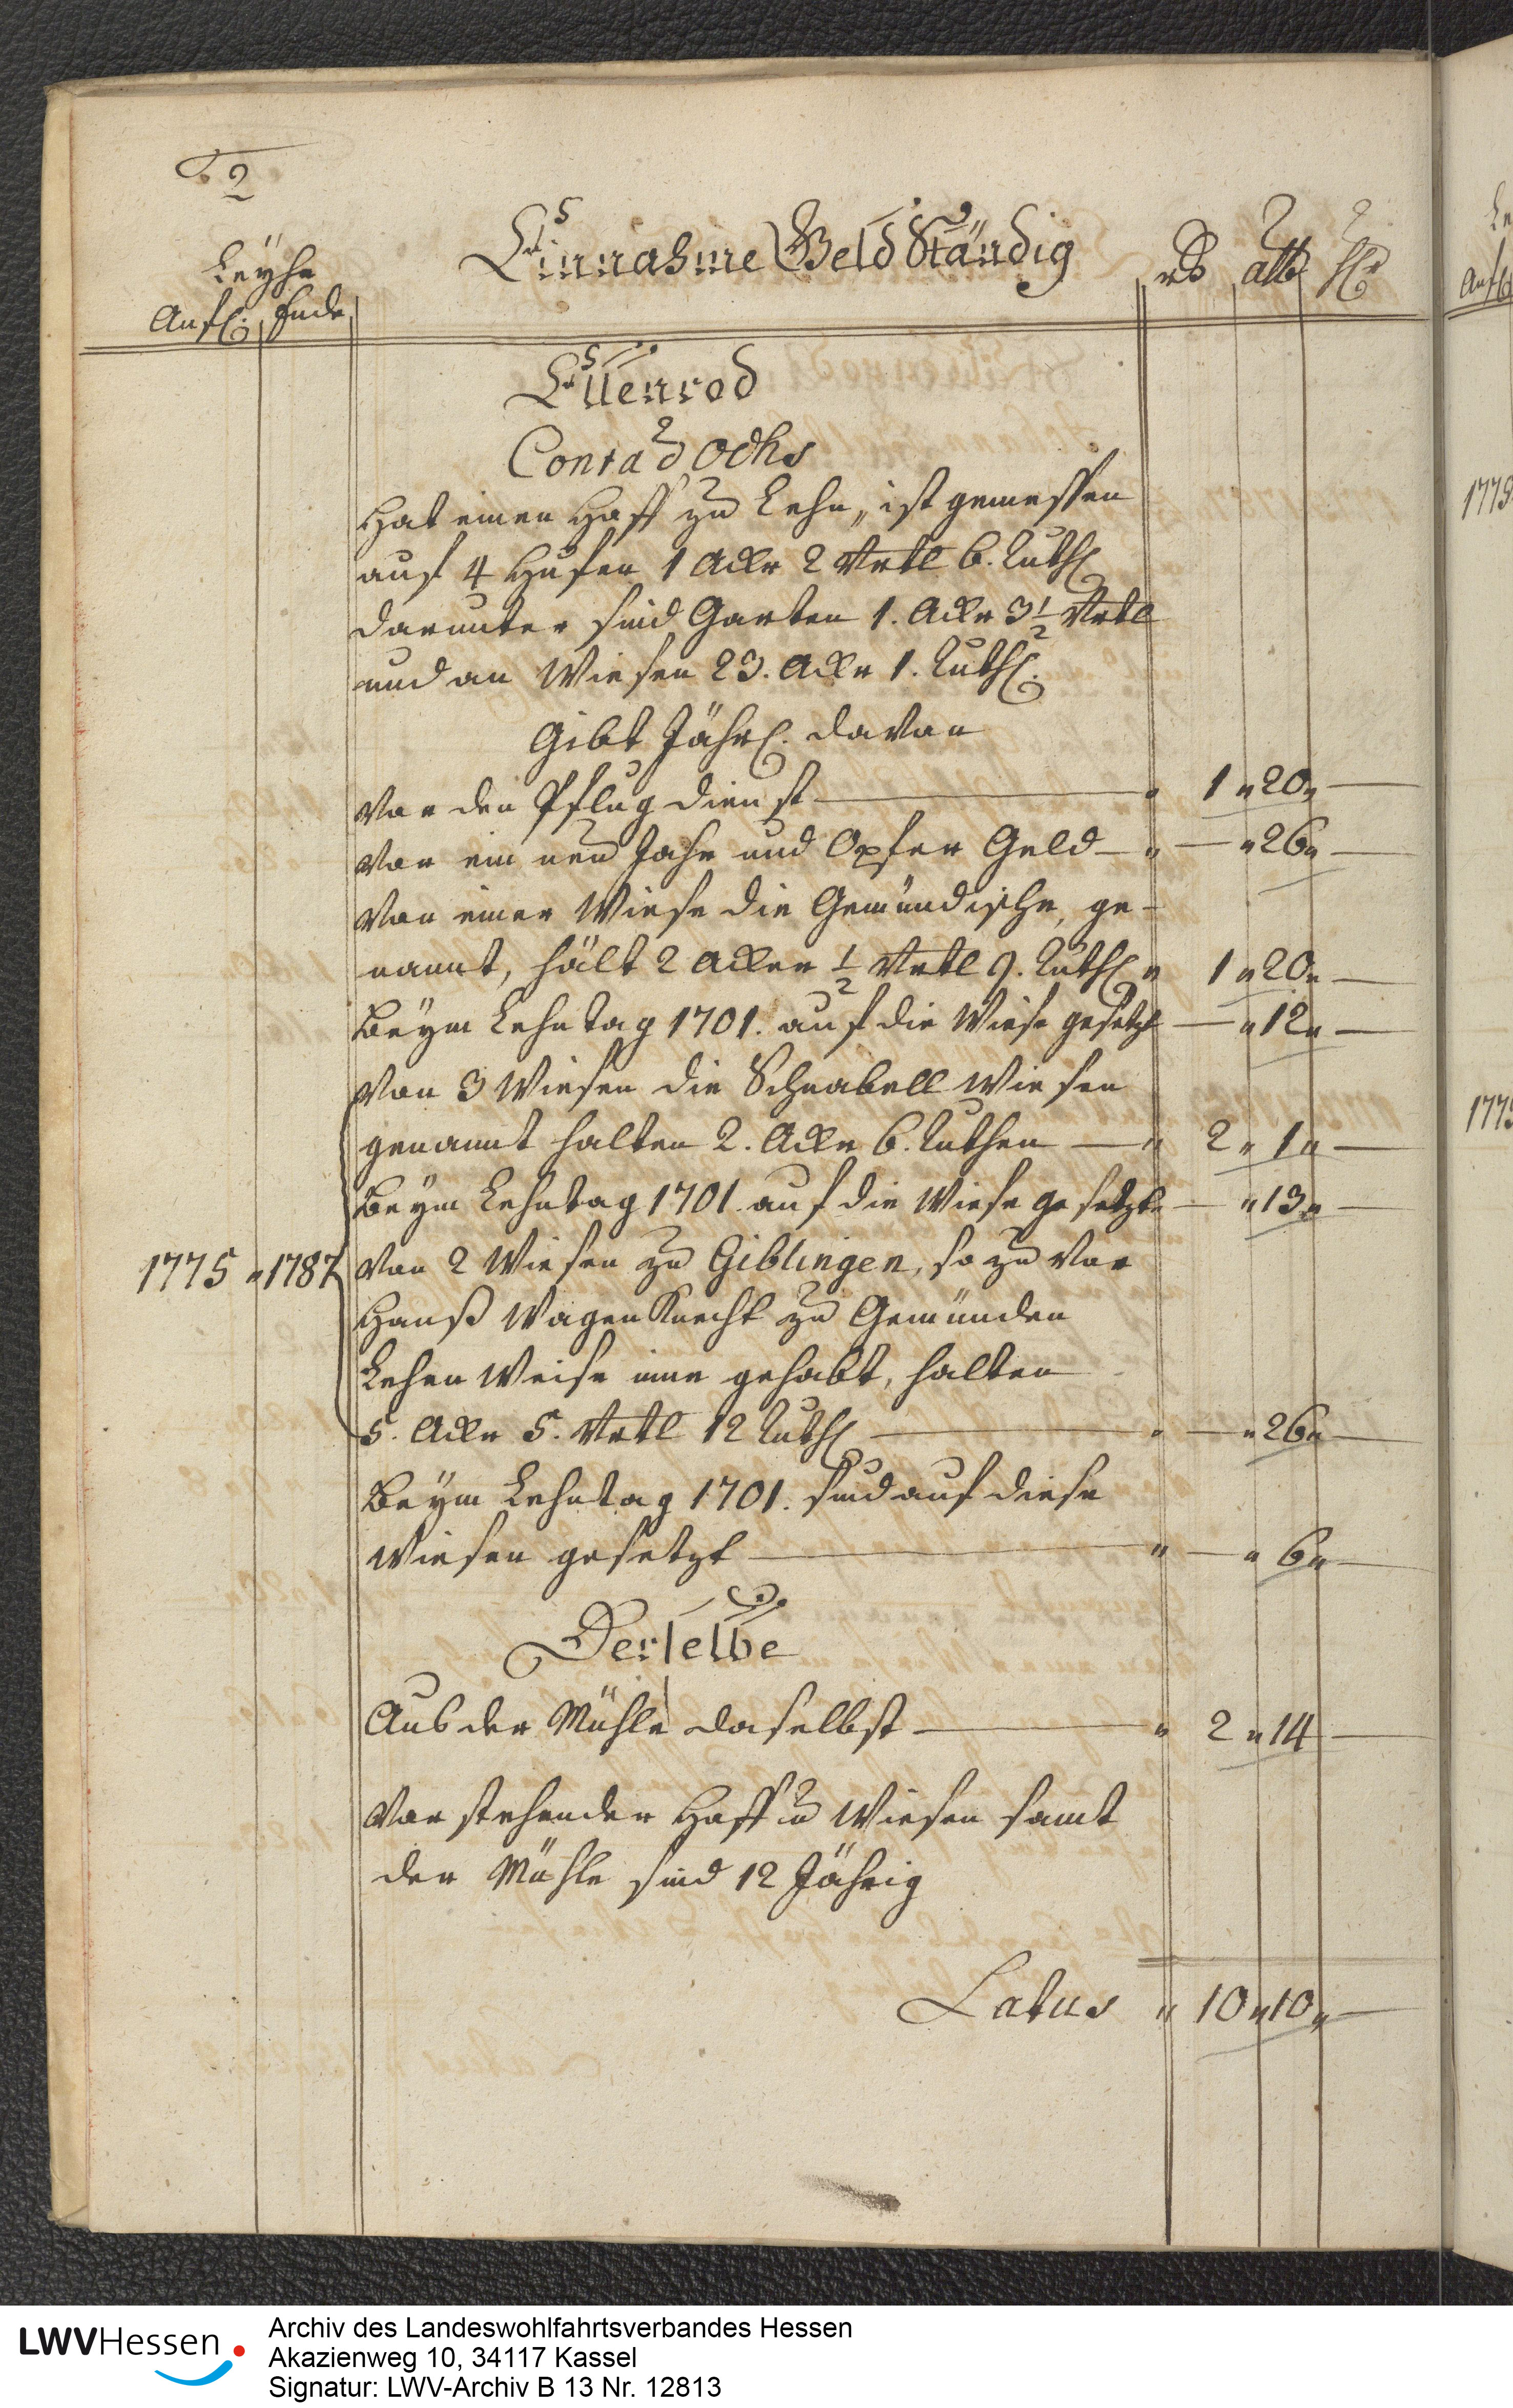 2
Leyhe
Anf. Ende
Einnahme Geld Ständig
rth alb hlr
Ellenrod
Conrad Ochs
Hat einen Hoff zu Lehn, ist gemessen
auf 4 Hufen 1 Ackr 2 Vrtl 6. Ruth
darunter sind Garten 1. Ackr 3½ Vrtl
und an Wiesen 23. Ackr 1. Ruth.
Gibt Jährl. davon
Vor den Pflug dienst — " 1 " 20 " —
Vor ein neu Jahr und Opfer Geld — " — " 26 " —
Von einer Wiese die Gemündische, ge-
nannt, hält 2 Acker ½ Vrtl 9. Ruth " 1 " 20 " —
Beym Lehntag 1701. auf die Wiese gesetzt — " 12 " —
Von 3 Wiesen die Schnabell Wiesen
genannt halten 2. Ackr 6. Ruthen — " 2 " 1 " —
Beym Lehntag 1701. auf die Wiese gesetzt — " 13 " —
1775 " 1787 Von 2 Wiesen zu Giblingen, so zu vor
Hanß Wagen Knecht zu Gemünden
Lehen Weise inne gehabt, halten
5. Ackr 5. Vrtl 12 Ruth — " — " 26 " —
Beym Lehntag 1701. sind auf diese
Wiesen gesetzt — " — " 6 " —
Derselbe
Aus der Mühle daselbst — " 2 " 14 —
Vor stehender Hoff u Wiesen samt
der Mühle sind 12 Jährig
Latus " 10 " 10 " —
LWVHessen
Archiv des Landeswohlfahrtsverbandes Hessen
Akazienweg 10, 34117 Kassel
Signatur: LWV-Archiv B 13 Nr. 12813